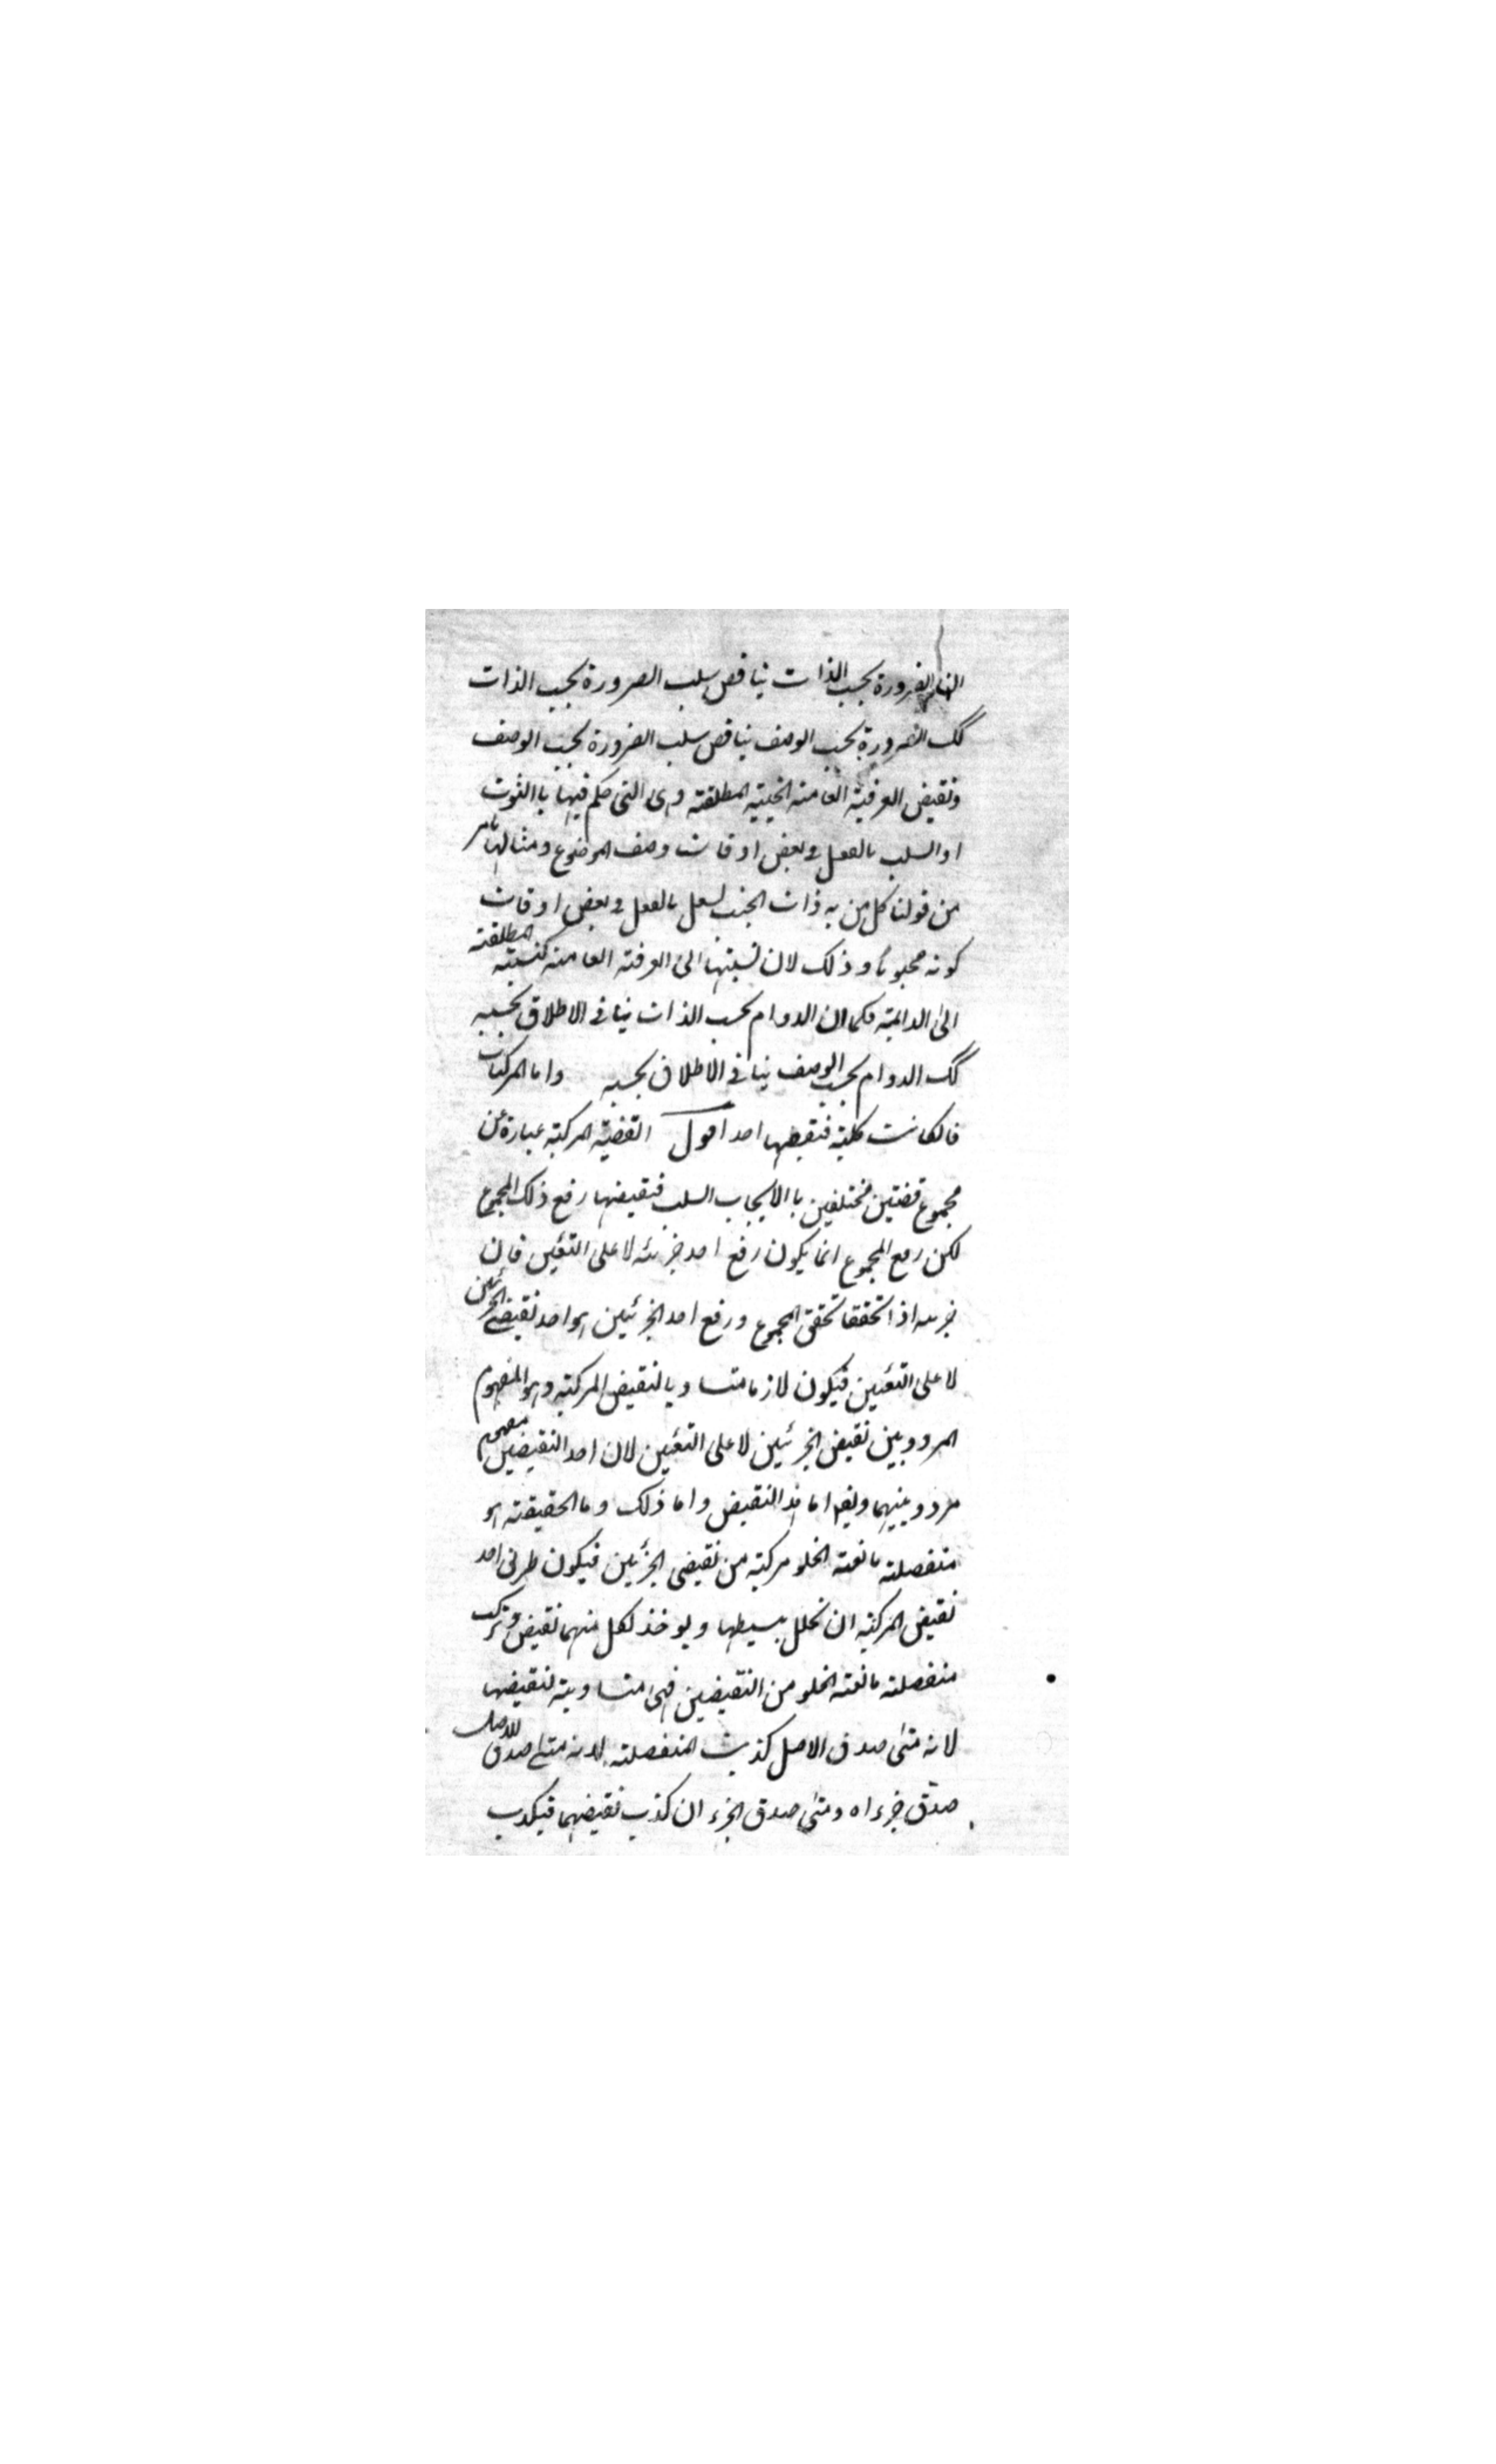 الضرورة بحسب الذات يناقض سلب الضرورة بحسب الذات
كك الضرورة بحسب الوصف يناقض سلب الضرورة بحسب الوصف
ونقيض العرفية العامة الحينية المطلقة وهى التى حكم فيها باالثبوت
او السلب بالفعل فى بعض اوقات وصف الموضوع ومثالها مامر
من قولنا كل من به ذات الجنب يسعل بالفعل فى بعض اوقات
كونه مجنوبا وذلك لان نسبتها الى العرفية العامة كنسبة المطلقة
الى الدائمة فكما ان الدوام بحسب الذات ينافى الاطلاق بحسبه
كك الدوام بحسب الوصف ينافى الاطلاق بحسبه واما المركبات
فانكانت كلية فنقيضها احد اقول القضية المركبة عبارة عن
مجموع قضتين مختلفين باالايجاب السلب فنقيضها رفع ذلك المجموع
لكن رفع المجموع انما يكون رفع احد جزئه لا على التعيين فان
جزيه اذا تحققا تحقق المجموع ورفع احد الجزئين هو احد نقيضى الجزئين
لا على التعيين فيكون لازما متساويا لنقيض المركبة وهو المفهوم
المردد بين نقيض الجزئين لا على التعيين لان احد النقيضين مفهوم
مردد بينهما ويقو اما هذا النقيض واما ذلك وما الحقيقة هو
منفصلة مانعة الخلو مركبة من نقيضى الجزئين فيكون طريق اخذ
نقيض المركبة ان تحلل بسيطها ويوخذ لكل منهما نقيض وتركب
منفصلة مانعة الخلو من النقيضين فهى متساوية لنقيضها
لانه متى صدق الاصل كذبت المنفصلة لانه متى صدق الاصل
صدق جزءاه ومتى صدق الجزءان كذب نقيضهما فيكذب